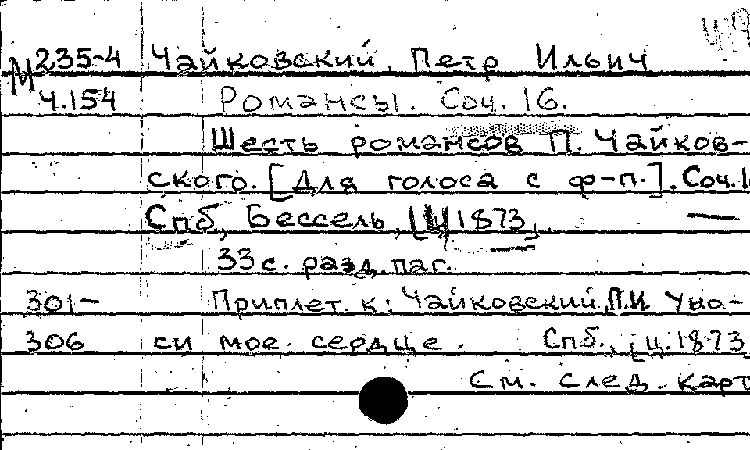 М 235-4 Чайковский, Петр Ильич
Ч.154 Романсы. Соч. 16.
Шесть романсов П. Чайков-
ского. [Для голоса с ф-п.]. Соч.1
Спб, Бессель, [ц 1873].
33 с. разд. паг.
301- Приплет. к: Чайковский, П.И. Уно-
306 си мое сердце. Спб., [ц. 1873
См. след. карт